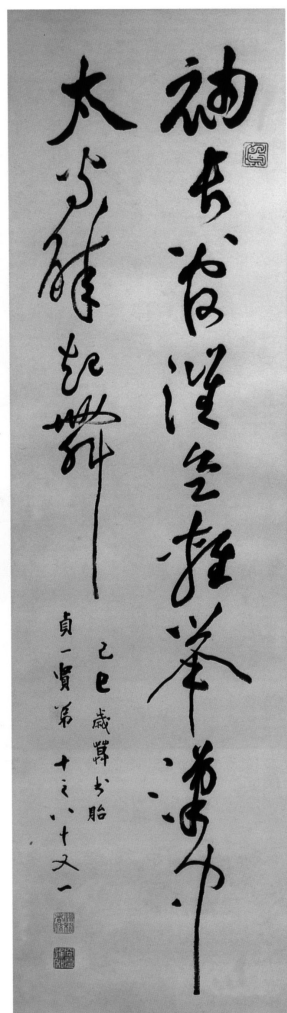 袖長管催欲輕舉漢中
太守醉起舞
己巳歲書貽
貞一賢弟 十之八十又一